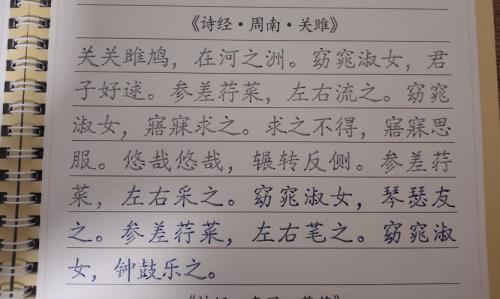 《诗经·周南·关雎》
关关雎鸠，在河之洲。窈窕淑女，君
子好逑。参差荇菜，左右流之。窈窕
淑女，寤寐求之。求之不得，寤寐思
服。悠哉悠哉，辗转反侧。参差荇
菜，左右采之。窈窕淑女，琴瑟友
之。参差荇菜，左右芼之。窈窕淑
女，钟鼓乐之。